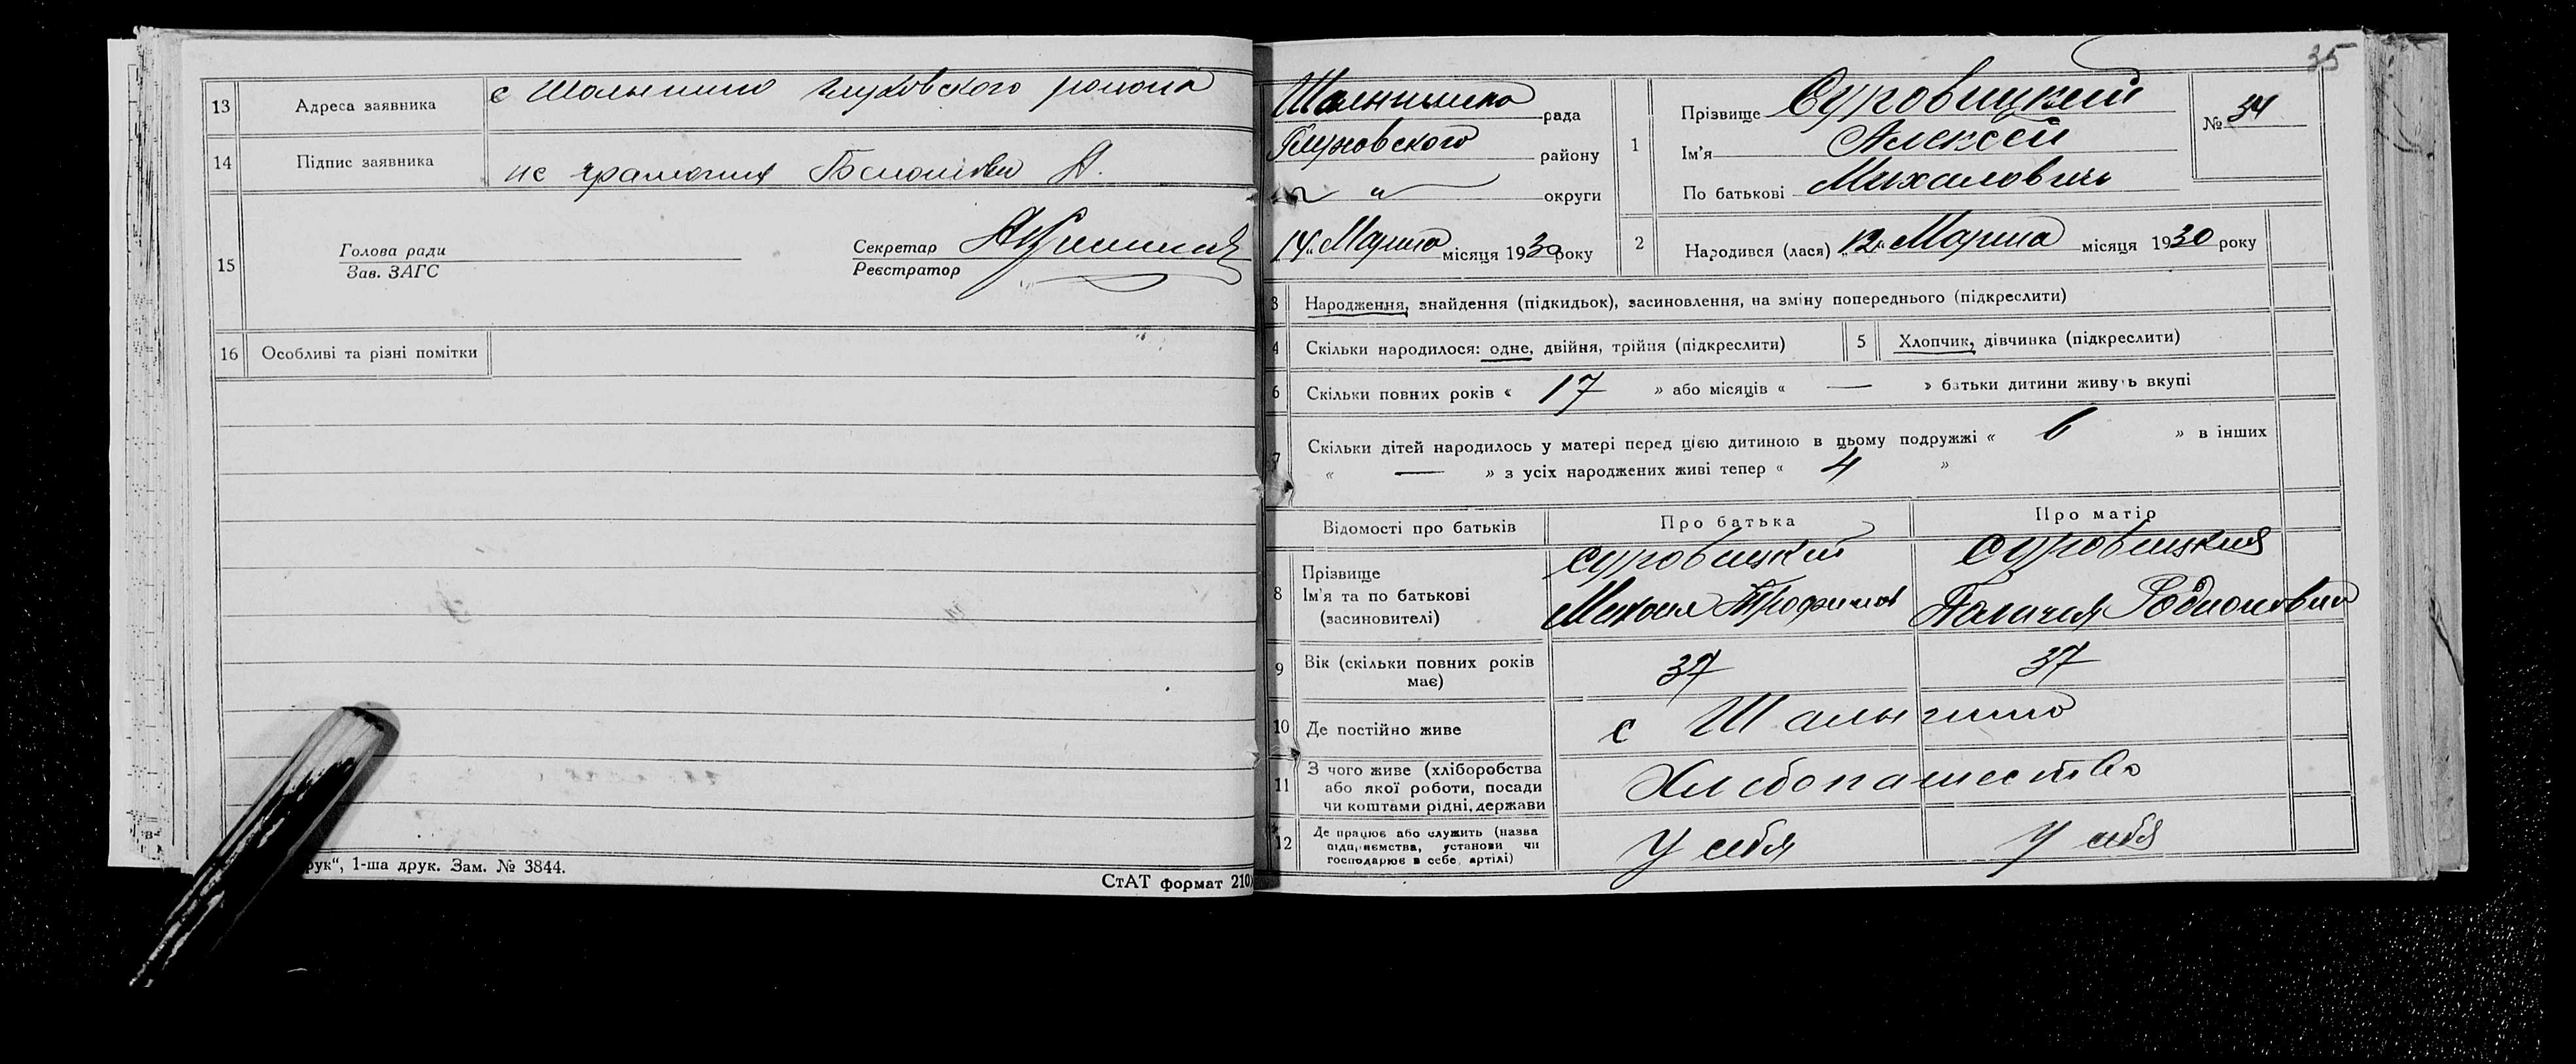 13 Адреса заявника с Шалыгино Глуховского района
14 Підпис заявника не грамотна
15 Голова ради
Зав. ЗАГС
Секретар
Реєстратор
16 Особливі та різні помітки
рук“, 1-ша друк. Зам. № 3844.
СтАТ формат 210
35
рада
Глуховского району
" округи
14 „ Марта місяця 1930 року
1 Прізвище Суровицкий
Ім'я Алексей
По батькові Михалович
№ 34
2 Народився (лася) „12„ Марта місяця 1930 року
3 Народження, знайдення (підкидьок), засиновлення, на зміну попереднього (підкреслити)
4 Скільки народилося: одне, двійня, трійня (підкреслити)
5 Хлопчик, дівчинка (підкреслити)
6 Скільки повних років « 17 » або місяців « — » батьки дитини живуть вкупі
7 Скільки дітей народилось у матері перед цією дитиною в цьому подружжі « 6 » в інших
« — » з усіх народжених живі тепер « 4 »
Відомості про батьків Про батька Про матір
8 Прізвище
Ім'я та по батькові
(засиновителі)
Суровицкий
Михаил Трофимов
Суровицкая
Палагея Родионовна
9 Вік (скільки повних років
має)
37 37
10 Де постійно живе с Шалыгино
11 З чого живе (хліборобства
або якої роботи, посади
чи коштами рідні, держави
Хлебопашество
12 Де працює або служить (назва
підприємства, установи чи
господарює в себе, артілі)
У себя У себя